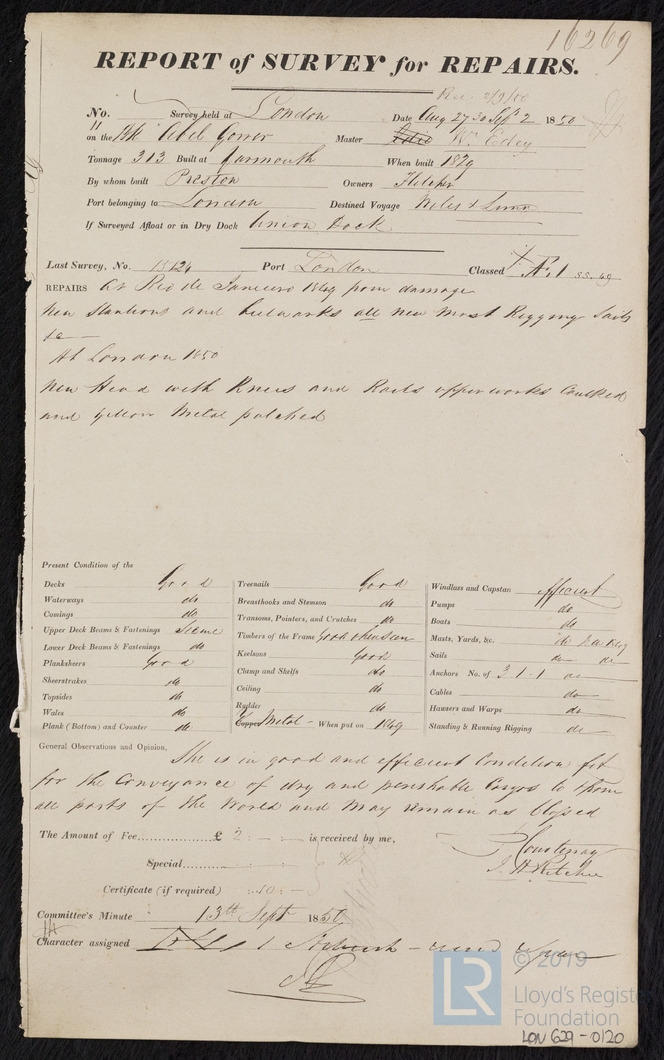 16269
REPORT of SURVEY for REPAIRS.
Rec 2/9/50
No. Survey held at London Date Aug 27 30 Sept 2 1850
on the Bk Abel Gower Master Wm Edey
Tonnage 313 Built at Yarmouth When built 1829
By whom built Preston Owners Fletcher
Port belonging to London Destined Voyage
If Surveyed Afloat or in Dry Dock Union Dock
Last Survey, No. 18124 Port London Classed Æ 1 SS. 49
REPAIRS At Rio de Janeiro 1849 from damage
New Stantions and bulwarks all new Mast Rigging Sails
&c
At London 1850
New Head with Knees and Rails upperworks Caulked
and yellow Metal patched
Present Condition of the
Decks Good Treenails Good Windlass and Capstan efficient
Waterways do Breasthooks and Stemson do Pumps do
Comings do Transoms, Pointers, and Crutches do Boats do
Upper Deck Beams & Fastenings Seen Timbers of the Frame Good when seen Masts, Yards, &c. do
Lower Deck Beams & Fastenings do Keelsons Good Sails do do
Planksheers Good Clamp and Shelfs do Anchors No. of 3 1-1 do
Sheerstrakes do Ceiling do Cables do
Topsides do Rudder do Hawsers and Warps do
Wales do Copper Y Metal - When put on 1849 Standing & Running Rigging do
Plank (Bottom) and Counter do
General Observations and Opinion, She is in good and efficient Condition fit
for the Conveyance of dry and perishable Cargos to & from
all parts of the World and May remain as Classed
The Amount of Fee £ 2 : - : - is received by me,
P Courtenay
J. H. Ritchie
Special : :
Certificate (if required) : 10 : -
Committee's Minute 13th Sept 1850
Character assigned
© 2019
LR
Lloyd's Register
Foundation
LON 629-0120